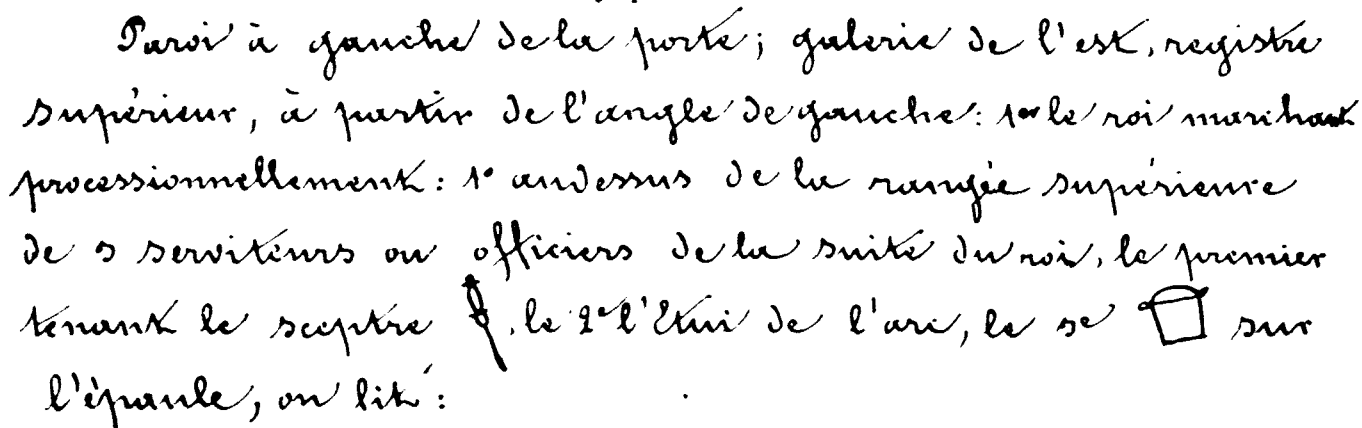 Paroi à gauche de la porte; galerie de l'est, registre
supérieur, à partir de l'angle de gauche: 1er le roi marchant
processionnellement: 1° audessus de la rangée supérieure
de 3 serviteurs ou officiers de la suite du roi, le premier
tenant le sceptre , le 2e l'Etui de l'arc, le 3e sur
l'épaule, on lit: